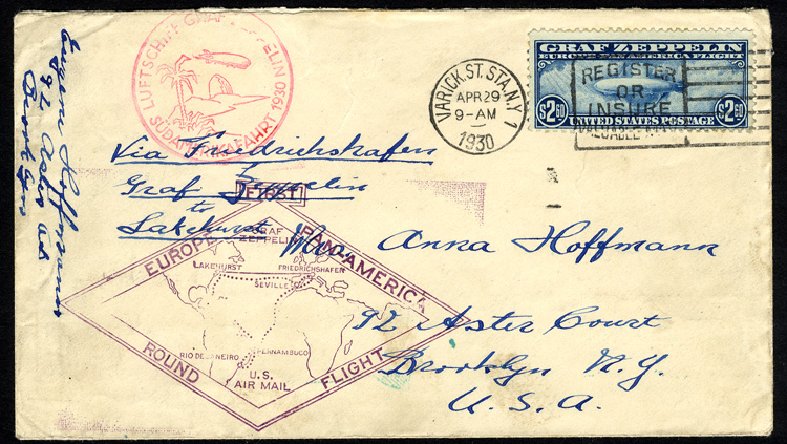 LUFTSCHIFF GRAF ZEPPELIN
SÜDAMERIKAFAHRT 1930
VARICK.ST.STA.N.Y. 1
APR 29
9-AM
1930
GRAF ZEPPELIN
EUROPE PAN-AMERICA FLIGHT
$2.60 $2.60
UNITED STATES POSTAGE
REGISTER
OR
INSURE
VALUABLE
Eugene Hoffmann
92 Aster Court
Brooklyn
Via Friedrichshafen
Graf Zeppelin
to
Lakehurst
Mrs. Anna Hoffmann
92 Aster Court
Brooklyn N.Y.
U.S.A.
FIRST
EUROPE PAN-AMERICA
GRAF
ZEPPELIN
LAKEHURST FRIEDRICHSHAFEN
SEVILLE
RIO DE JANEIRO PERNAMBUCO
U.S.
AIR MAIL
ROUND FLIGHT